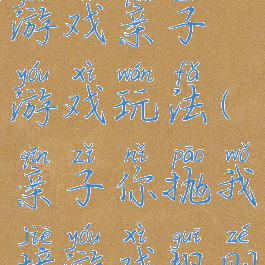 游戏亲子
yóu xì wán fǎ
游戏玩法(
qīn zǐ nǐ pāo wǒ
亲子你抛我
jiē yóu xì guī zé
接游戏规则